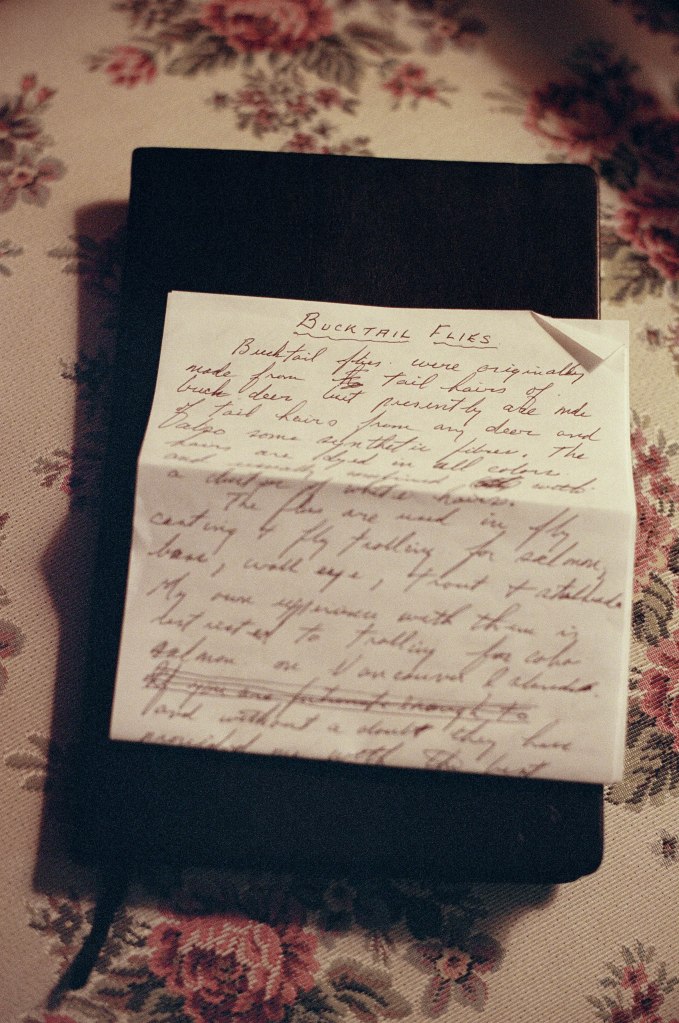 BUCKTAIL FLIES
Bucktail flies were originally
made from tail hairs of
buck deer but presently are made
of tail hairs from any deer and
also some synthetic fibres. The
hairs are dyed in all colors
and usually with
a of white hairs.
The flies are used in fly
casting & fly trolling for salmon,
bass, wall eye, trout & steelhead
My own experience with them is
restricted to trolling for coho
salmon on Vancouver Island.
If you are fortunate enough to
and without a doubt they have
provided me with the best